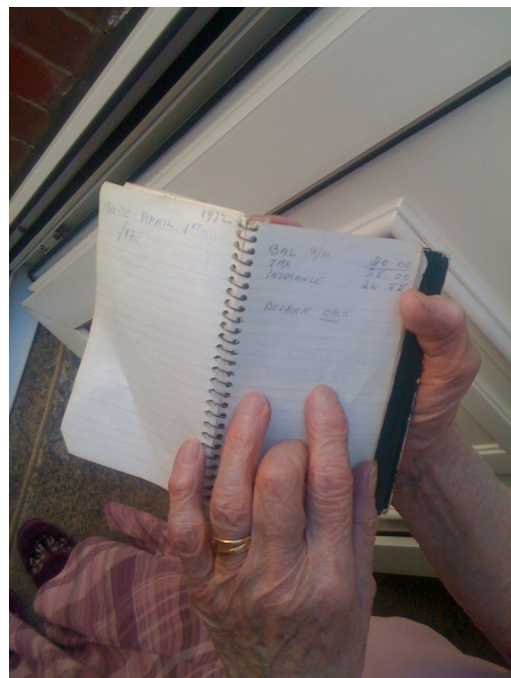 SUITE APRIL 1ST 1972
£170
BAL B/F 20 00
TAX 25 00
INSURANCE 24 55
BEDROOM BACK